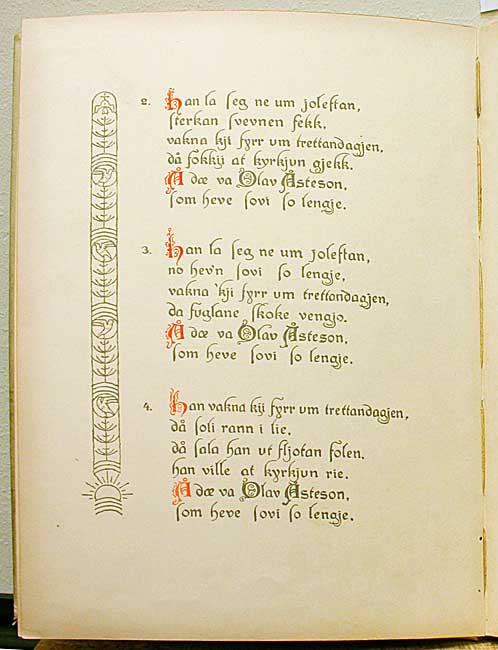 2. Han la seg ne um joleftan,
sterkan svevnen fekk,
vakna kji fyrr um trettandagjen,
då fokkji at kyrkjun gjekk.
Å dæ va Olav Åsteson,
som heve sovi so lengje.
3. Han la seg ne um joleftan,
no hev'n sovi so lengje,
vakna 'kji fyrr um trettandagjen,
da fuglane skoke vengjo.
Å dæ va Olav Åsteson,
som heve sovi so lengje.
4. Han vakna kji fyrr um trettandagjen,
då soli rann i lie.
då sala han ut fljotan folen.
han ville at kyrkjun rie.
Å dæ va Olav Åsteson,
som heve sovi so lengje.